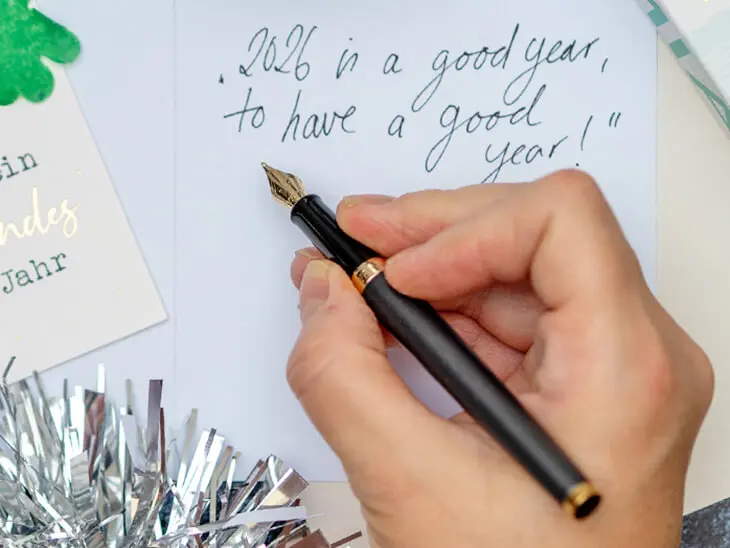 „2026 is a good year,
to have a good
year!"
in
ndes
Jahr